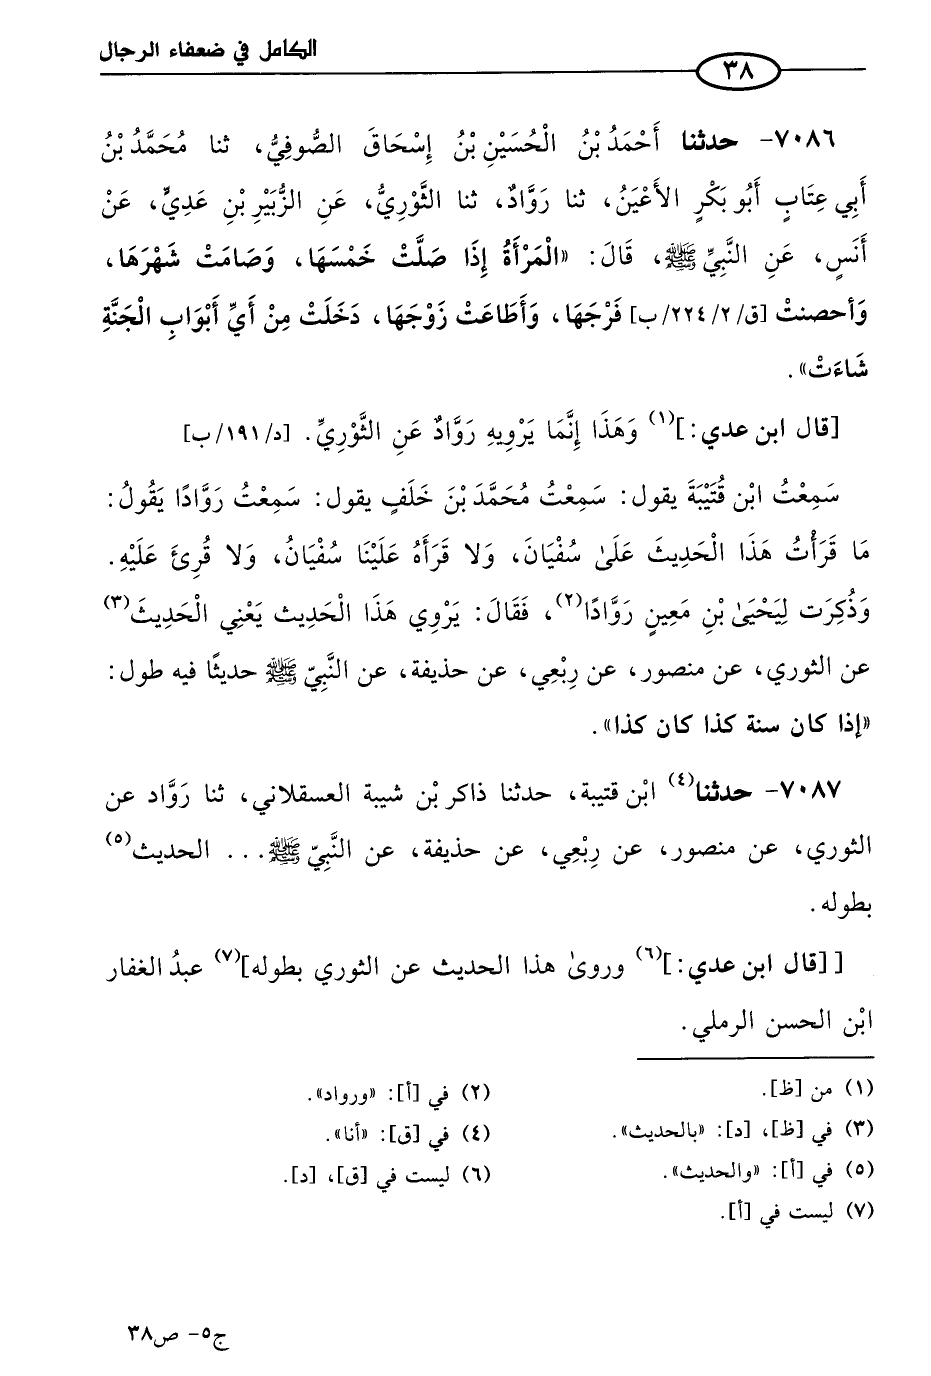 الكامل في ضعفاء الرجال
٣٨
٧٠٨٦- حدثنا أَحْمَدُ بْنُ الْحُسَيْنِ بْنُ إِسْحَاقَ الصُّوفِيُّ، ثنا مُحَمَّدُ بْنُ
أَبِي عِتَابٍ أَبُو بَكْرٍ الأَعْيَنُ، ثنا رَوَّادٌ، ثنا الثَّوْرِيُّ، عَنِ الزُّبَيْرِ بْنِ عَدِيٍّ، عَنْ
أَنَسٍ، عَنِ النَّبِيِّ ﷺ، قَالَ: «الْمَرْأَةُ إِذَا صَلَّتْ خَمْسَهَا، وَصَامَتْ شَهْرَهَا،
وَأحصنتْ [ق/ ٢/ ٢٢٤/ ب] فَرْجَهَا، وَأَطَاعَتْ زَوْجَهَا، دَخَلَتْ مِنْ أَيِّ أَبْوَابِ الْجَنَّةِ
شَاءَتْ».
[قال ابن عدي:](١) وَهَذَا إِنَّمَا يَرْوِيهِ رَوَّادٌ عَنِ الثَّوْرِيِّ. [د/ ١٩١/ ب]
سَمِعْتُ ابْن قُتَيْبَةَ يقول: سَمِعْتُ مُحَمَّدَ بْنَ خَلَفٍ يقول: سَمِعْتُ رَوَّادًا يَقُولُ:
مَا قَرَأْتُ هَذَا الْحَدِيثَ عَلَىٰ سُفْيَانَ، وَلا قَرَأَهُ عَلَيْنَا سُفْيَانُ، وَلا قُرِئَ عَلَيْهِ.
وَذُكِرَت لِيَحْيَىٰ بْنِ مَعِينٍ رَوَّادًا(٢)، فَقَالَ: يَرْوِي هَذَا الْحَدِيث يَعْنِي الْحَدِيثَ(٣)
عن الثوري، عن منصور، عن رِبْعِي، عن حذيفة، عن النَّبِيّ ﷺ حديثًا فيه طول:
«إذا كان سنة كذا كان كذا».
٧٠٨٧- حدثنا(٤) ابْن قتيبة، حدثنا ذاكر بْن شيبة العسقلاني، ثنا رَوَّاد عن
الثوري، عن منصور، عن رِبْعِي، عن حذيفة، عن النَّبِيّ ﷺ... الحديث(٥)
بطوله.
[ [قال ابن عدي:](٦) وروىٰ هذا الحديث عن الثوري بطوله](٧) عبدُ الغفار
ابْن الحسن الرملي.
(١) من [ظ].
(٢) في [أ]: «ورواد».
(٣) في [ظ]، [د]: «بالحديث».
(٤) في [ق]: «أنا».
(٥) في [أ]: «والحديث».
(٦) ليست في [ق]، [د].
(٧) ليست في [أ].
ج٥- ص٣٨